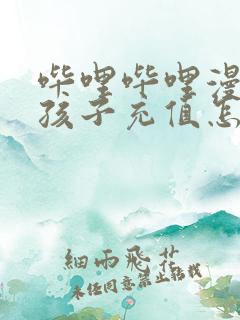 哔哩哔哩漫
孩子充值怎
細雨飛花
未经同意禁止转载